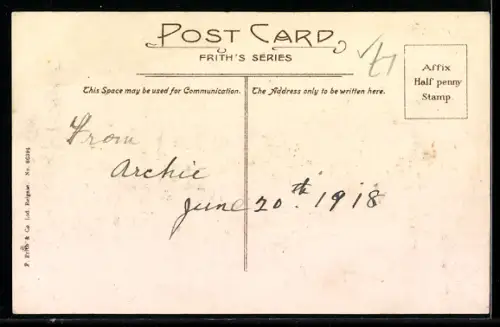 POST CARD
FRITH'S SERIES
Affix
Half penny
Stamp.
This Space may be used for Communication.
The Address only to be written here.
From
Archie
June 20th. 1918
F. Frith & Co. Ltd. Reigate. No.